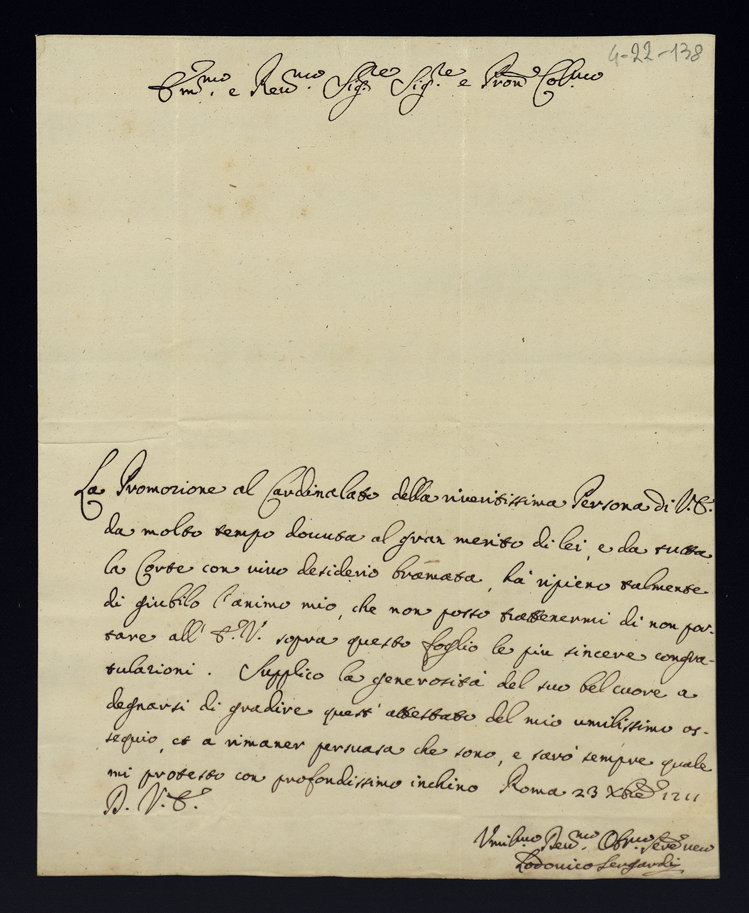 4-22-138
Em.mo e Rev.mo Sig.re Sig.re e Pron.e Col.mo
La Promozione al Cardinalato della riveritissima Persona di V.E.
da molto tempo douuta al gran merito di lei, e da tutta
la Corte con viuo desiderio bramata, ha ripieno talmente
di giubilo l'animo mio, che non posso trattenermi di non por-
tare all' E.V. sopra questo foglio le piu sincere congra-
tulazioni. Supplico la generosità del suo bel cuore a
degnarsi di gradire quest' attestato del mio umilissimo os-
sequio, et a rimaner persuasa che sono, e sarò sempre quale
mi protesto con profondissimo inchino Roma 23 Xbre 1711
D. V. E.
Vmil.mo Deu.mo Obl.mo Ser.e vero
Lodouico Sergardi